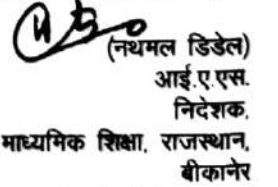 (नथमल डिडेल)
आई.ए.एस.
निदेशक,
माध्यमिक शिक्षा, राजस्थान,
बीकानेर